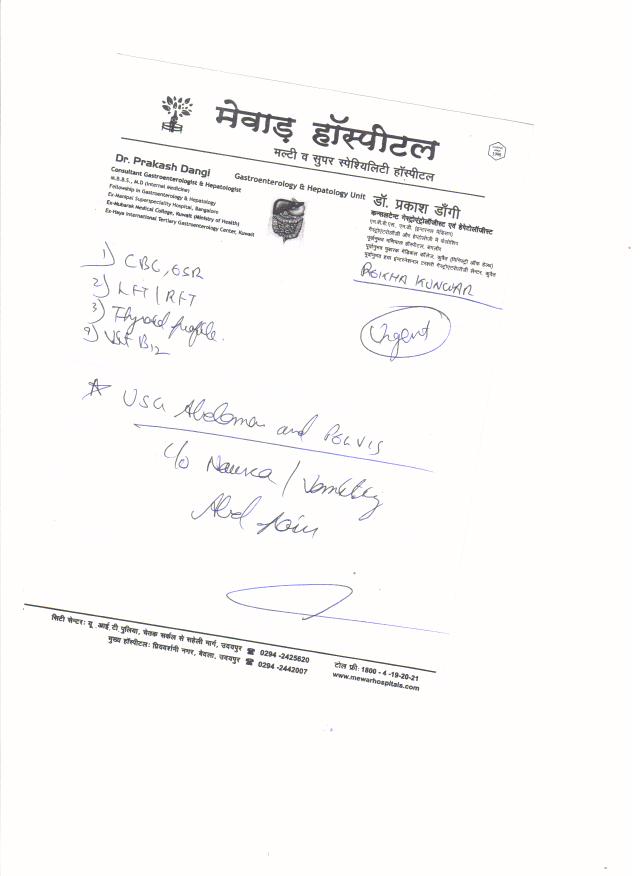 मेवाड़ हॉस्पीटल
मल्टी व सुपर स्पेश्यिलिटी हॉस्पीटल
Dr. Prakash Dangi
Consultant Gastroenterologist & Hepatologist
M.B.B.S., M.D (Internal Medicine)
Fellowship in Gastroenterology & Hepatology
Ex-Manipal Superspeciality Hospital, Bangalore
Ex-Mubarak Medical College, Kuwait (Ministry of Health)
Ex-Haya International Tertiary Gastroenterology Center, Kuwait
Gastroenterology & Hepatology Unit
डॉ. प्रकाश डाँगी
कन्सलटेन्ट गेस्ट्रोएंट्रोलॉजीस्ट एवं हेपेटोलॉजीस्ट
KUNWAR
Urgent
1) CBC, ESR
2) LFT / RFT
3) Thyroid profile.
4) Vit B12
USG Abdomen and PELVIS
C/o Nausea / Vomiting
Abd pain
सिटी सेन्टर: यू.आई.टी.पुलिया, चेतक सर्कल से सहेली मार्ग, उदयपुर ☎ 0294 -2425620
मुख्य हॉस्पीटल: प्रियदर्शनी नगर, बेदला, उदयपुर ☎ 0294 -2442007
टोल फ्री: 1800 - 4 -19-20-21
www.mewarhospitals.com